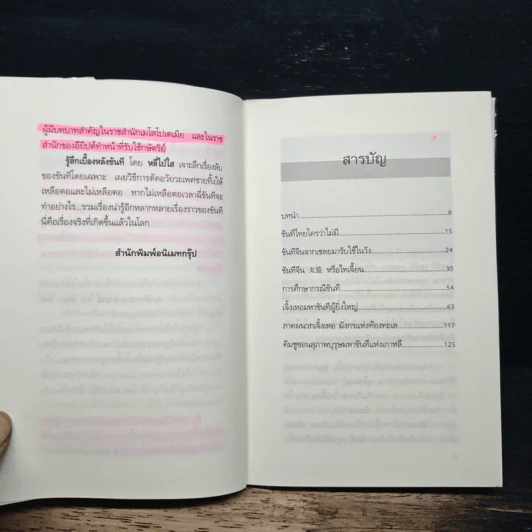 ผู้มีบทบาทสำคัญในราชสำนักเมโสโปเตเมีย และในราช
สำนักของอียิปต์ทำหน้าที่รับใช้กษัตริย์
รู้ลึกเบื้องหลังขันที โดย หลี่ไป่ไส เจาะลึกเรื่องลับ
ของขันทีโดยเฉพาะ เผยวิธีการตัดอวัยวะเพศชายทิ้งให้
เหลือตอและไม่เหลือตอ หากไม่เหลือตอเวลาฉี่ขันทีจะ
ทำอย่างไร...รวมเรื่องน่ารู้อีกหลากหลายเรื่องราวของขันที
นี่คือเรื่องจริงที่เกิดขึ้นแล้วในโลก
สำนักพิมพ์อนิเมทกรุ๊ป
สารบัญ
บทนำ 8
ขันทีไทยใครว่าไม่มี 15
ขันทีจีนจากเชลยมารับใช้ในวัง 24
ขันทีจีน 太监 หรือไท่เจี้ยน 30
การศึกษากรณีขันที 54
เจิ้งเหอมหาขันทีผู้ยิ่งใหญ่ 63
ภาคผนวกเจิ้งเหอ มังกรแห่งท้องทะเล 117
คิมชูซอนสุภาพบุรุษมหาขันทีแห่งเกาหลี 125